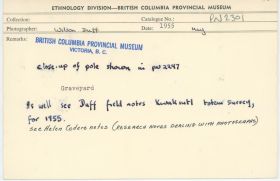 ETHNOLOGY DIVISION—BRITISH COLUMBIA PROVINCIAL MUSEUM
Collection: Catalogue No.: PN 2301
Photographer: Wilson Duff 1955 May
Remarks: BRITISH COLUMBIA PROVINCIAL MUSEUM
VICTORIA, B. C.
close-up of pole shown in PN 2247
Graveyard
As well see Duff field notes Kwakiutl totem survey,
for 1955.
see Helen Codere notes (RESEARCH NOTES DEALING WITH PHOTOGRAPHS)